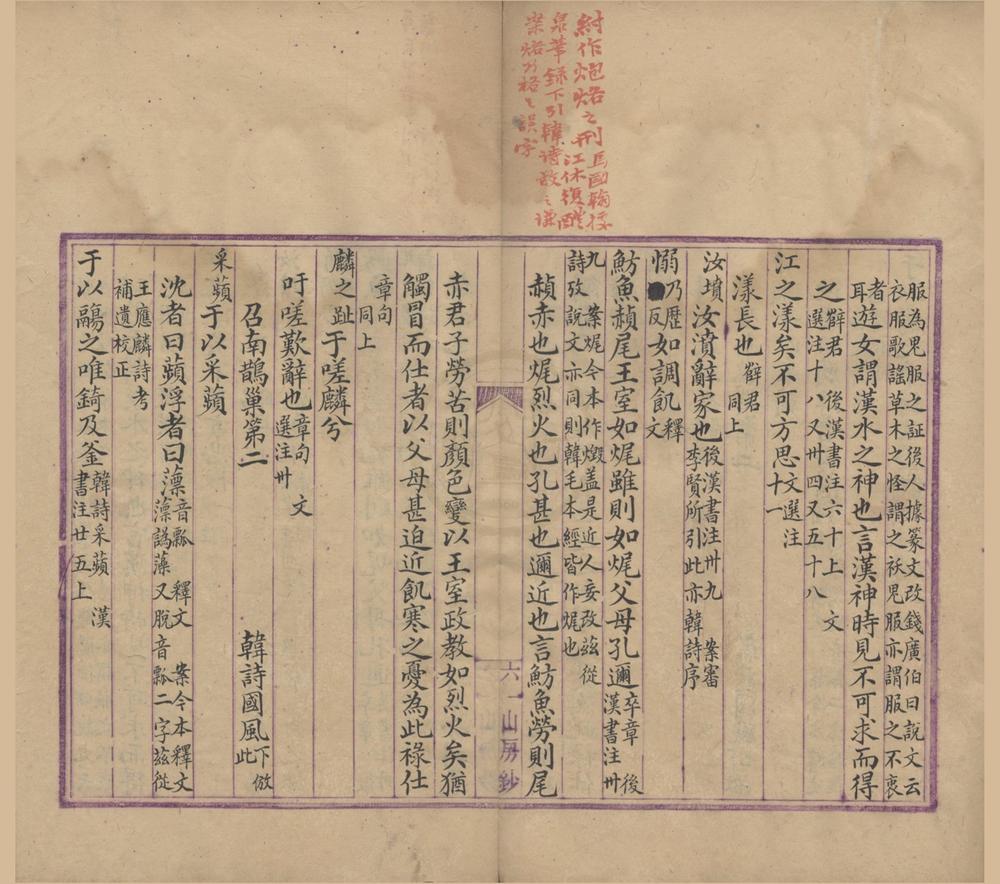 紂作炮烙之刑馬國翰校
江休復醴
泉筆錄下引韓詩敌之謹
案烙乃格之誤字
服為鬼服之証後人據篆文改錢廣伯曰說文云
衣服歌謠草木之怪謂之袄鬼服亦謂服之不衷
者
耳遊女謂漢水之神也言漢神時見不可求而得
之薛君 後漢書注六十上 文
選注十八又卅四又五十八
江之漾矣不可方思文選注
十一
漾長也薛君
同上
汝墳 汝濆辭家也後漢書注卅九 案審
李賢所引此亦韓詩序
惄乃歷 如調飢釋
反 文
魴魚赬尾王室如烬雖則如烬父母孔邇卒章 後
漢書注卅
九 案烬今本作燬盖是近人妄改茲從
詩攷說文亦同則韓毛本經皆作烬也
赬赤也烬烈火也孔甚也邇近也言魴魚勞則尾
六一山房鈔
赤君子勞苦則顏色變以王室政教如烈火矣猶
觸冒而仕者以父母甚迫近飢寒之憂為此祿仕
章句
同上
麟之趾 于嗟麟兮
吁嗟歎辭也章句 文
選注卅
召南鵲巢第二 韓詩國風下倣
此
采蘋 于以采蘋
沈者曰蘋浮者曰薸音瓢 釋文 案今本釋文
薸譌藻又脫音瓢二字茲從
王應麟詩考
補遺校正
于以鬺之唯錡及釜韓詩采蘋 漢
書注廿五上